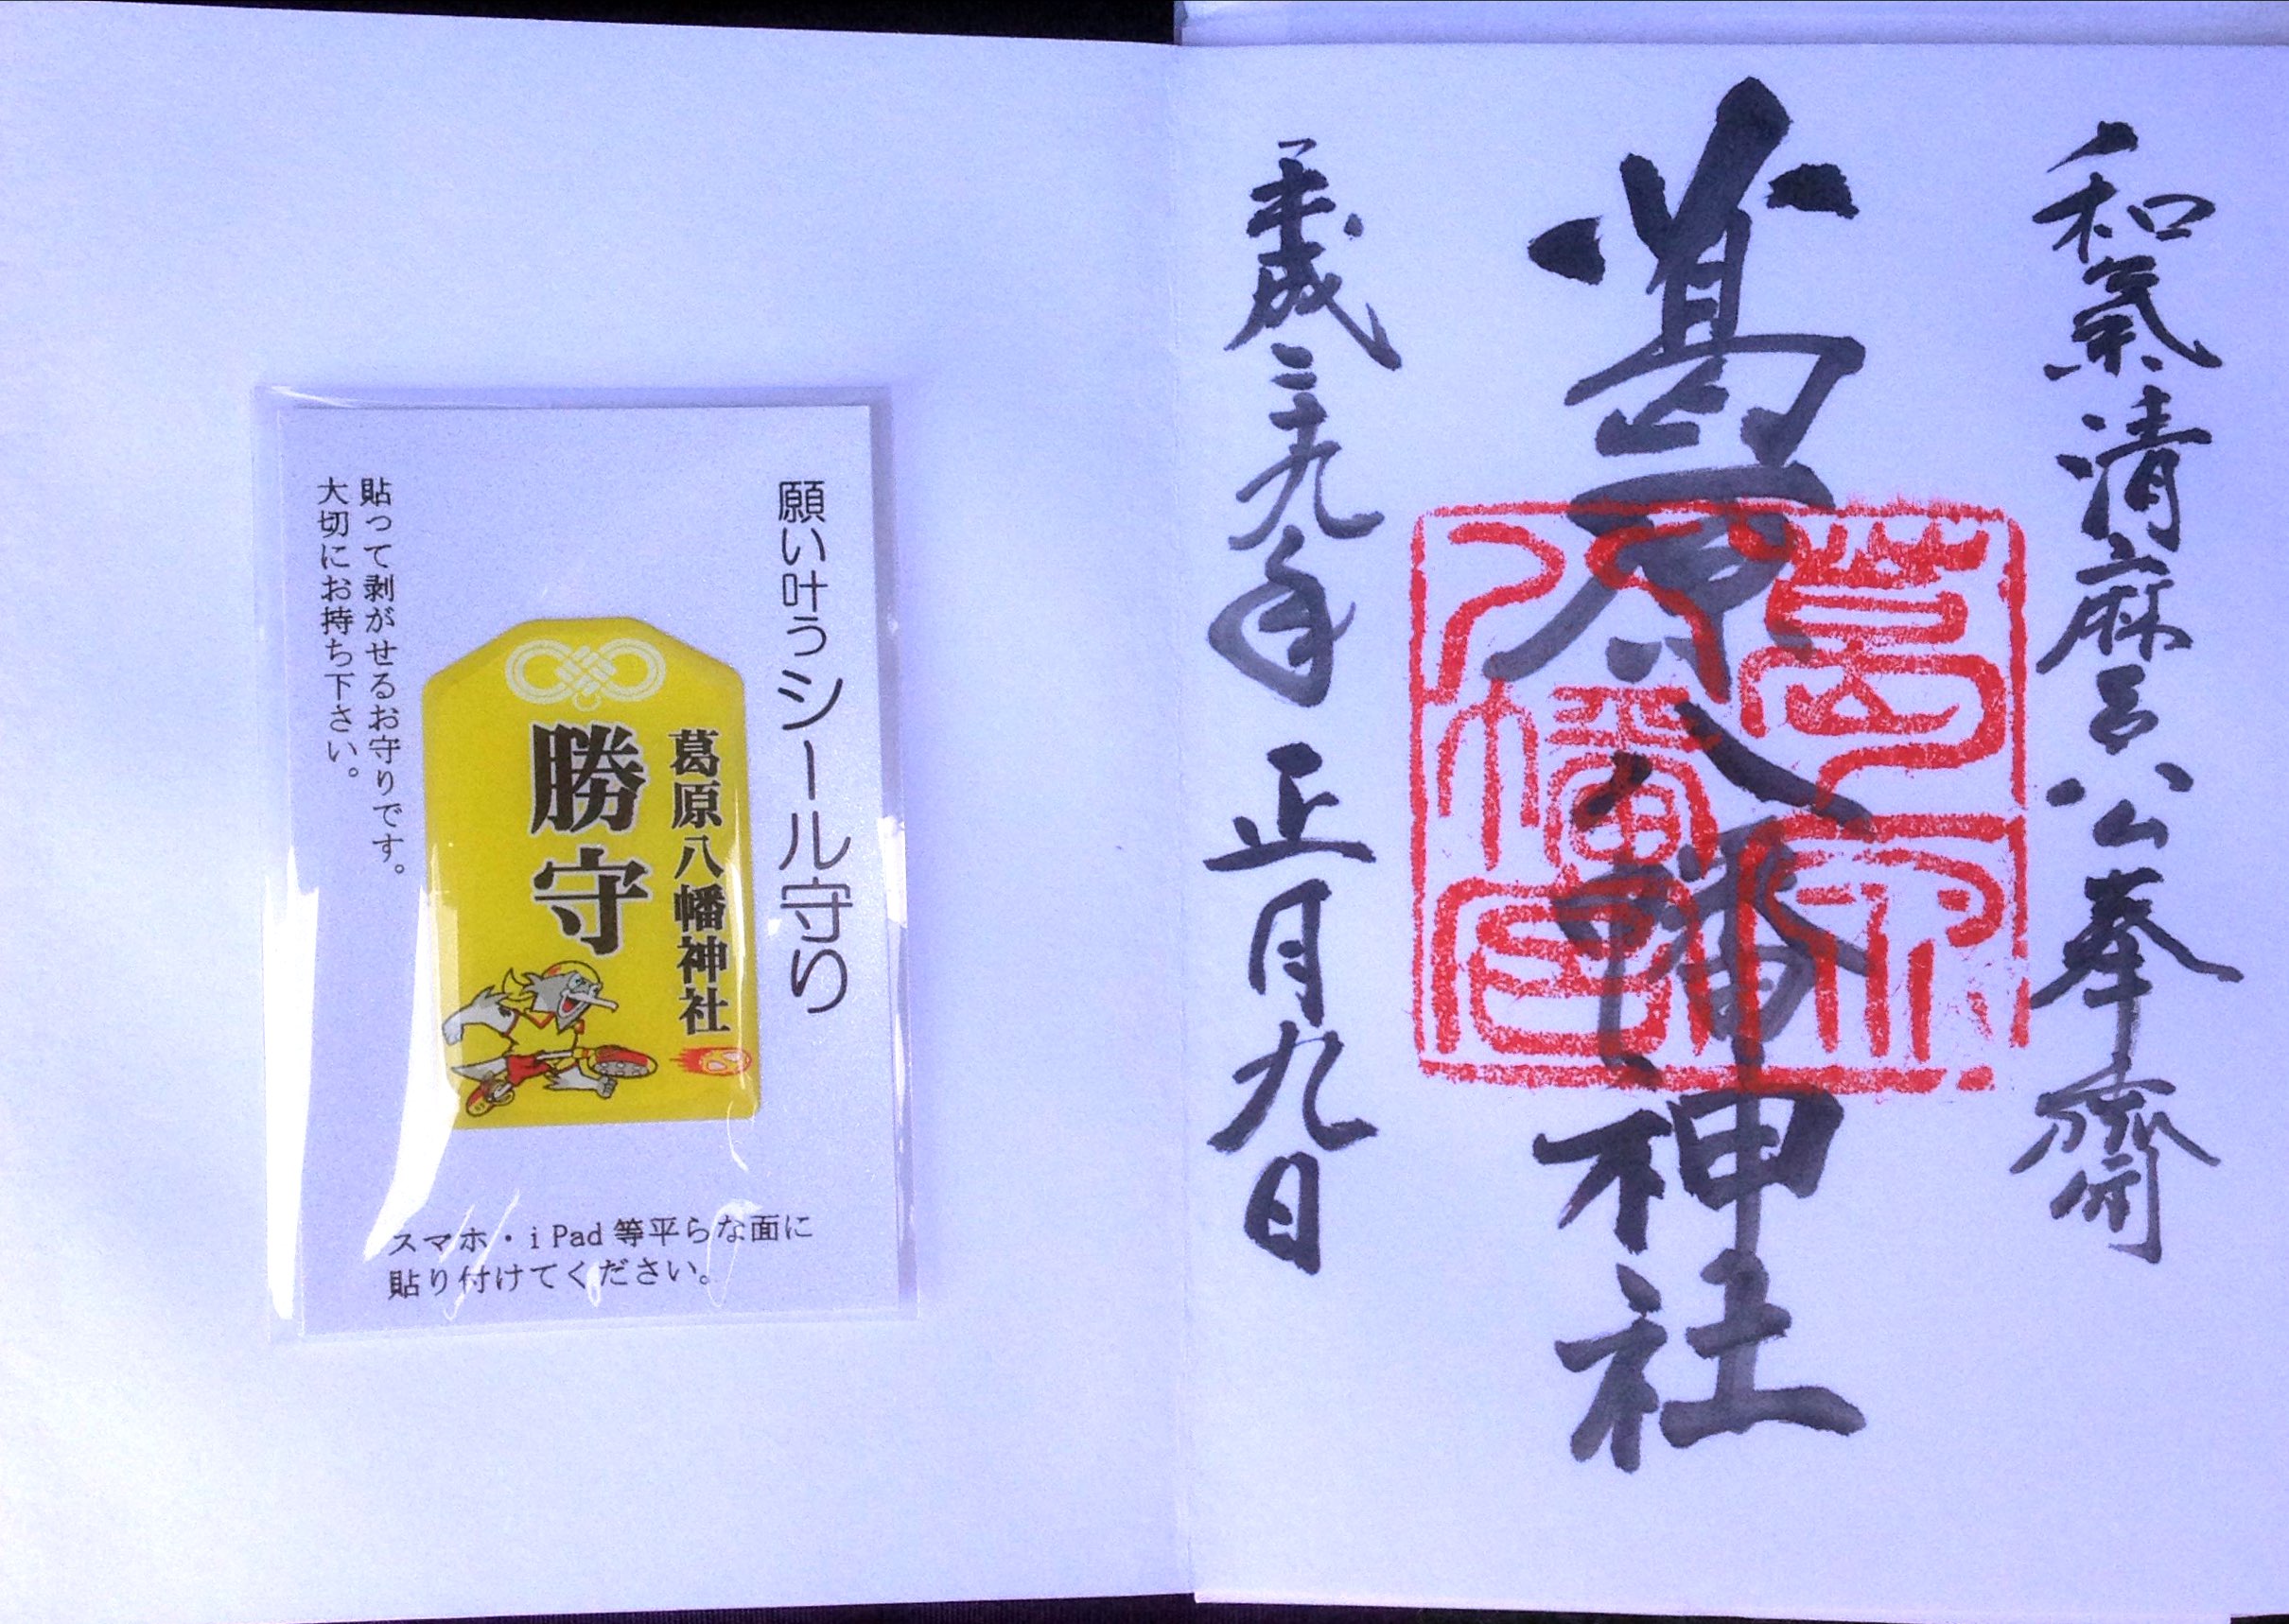 和氣清麻呂公奉齋
葛原八幡神社
平成二十九年正月九日
葛原
八幡宮
願い叶うシール守り
葛原八幡神社
勝守
貼って剥がせるお守りです。
大切にお持ち下さい。
スマホ・iPad等平らな面に
貼り付けてください。